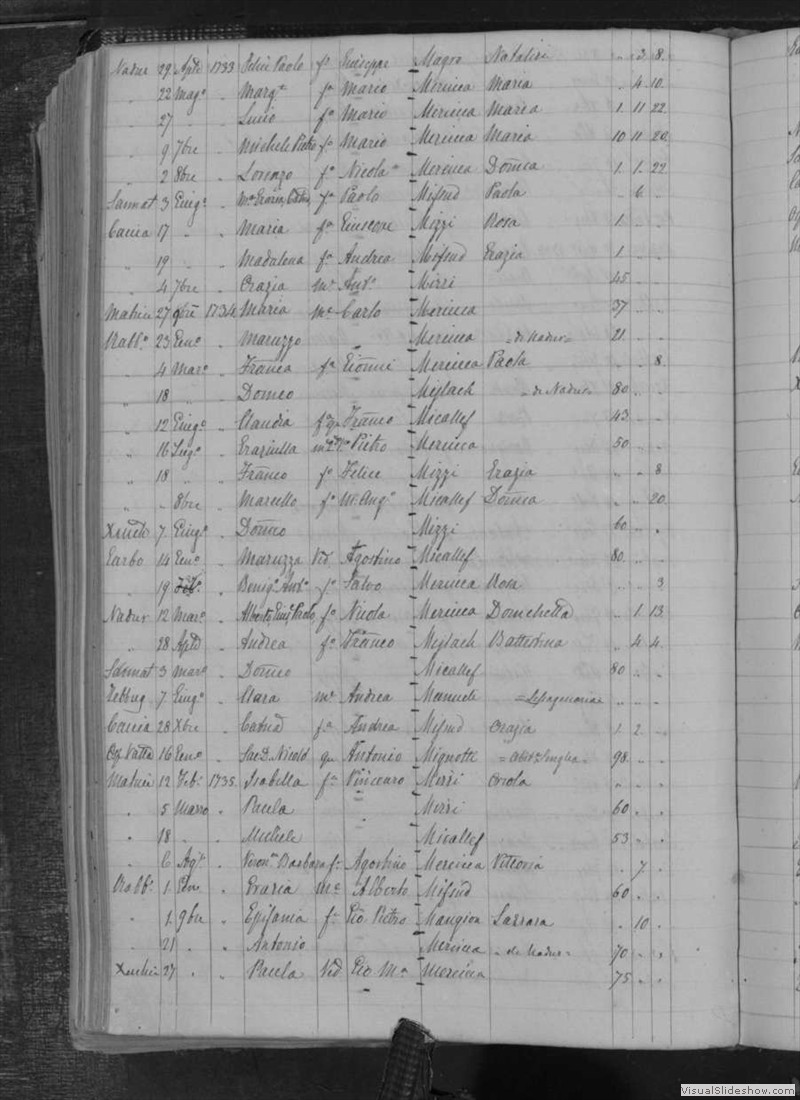 Nadur 29 Aple 1733 Felice Paolo fo Giuseppe Magro Natalizi " 2 8.
" 22 Mago " Margta fa Mario Mercieca Maria " 4 10
" 27 " Lucio fo Mario Mercieca Maria 1 11 22
" 9 7bre " Michele Pietro fo Mario Mercieca Maria 10 11 20
" 2 8bre " Lorenzo fo Nicola Mercieca Domca 1 1 22
Sannat 3 Giugo " fa Paolo Mifsud Paola " 6 "
Caccia 17 " " Maria fa Giuseppe Mizzi Rosa 1 " "
" 19 " " Madalena fa Andrea Mifsud Grazia 1 " "
" 4 7bre " Grazia me Anto Mizzi 45 " "
Matrice 27 9bre 1734 Maria me Carlo Mercieca 37 " "
Rabbo 23 Geno " Maruzzo " Mercieca " di Nadur " 21 " "
" 4 Maro " Franca fa Gionni Mercieca Paola " " 8
" 18 " " Domco Mejlach " di Nadur " 80 " "
" 12 Giugo " Claudia fa qm Franco Micallef 43 " "
" 16 Lugo " Graziulla Pietro Mercieca 50 " "
" 18 " " Franco fo Felice Mizzi Grazia " " 8
" " 8bre " Marcello fo M. Ango Micallef Domca " " 20
Xeuch 7 Giugo " Domco Mizzi 60 " "
Garbo 14 Geno " Maruzza Vid Agostino Micallef 80 " "
" 19 Febo " Benigo Anto fo Salvo Mercieca Rosa " " 3
Nadur 12 Maro " Alberto Paolo fo Nicola Mercieca Domchella " 1 13
" 28 Aple " Andrea fo Franco Mejlach Battistina " 4 4
Sannat 3 Maro " Domco Micallef 80 " "
Zebbug 7 Giugo " Clara me Andrea Manuele " " "
Caccia 28 Xbre " Catnd fa Andrea Mifsud Grazia 1 2 "
16 Geno " Sac.D. Nicolò qm Antonio Mignotte 98 " "
Matrice 12 Febo 1735 Isabella fa Vincenzo Mizzi Orsola " " "
" 5 Marzo " Paola Mizzi 60 " "
" 18 " " Michele Micallef 53 " "
" 6 Agto " Barbara fa Agostino Mercieca Vittoria " 7 "
Rabbo 1 " Grazia me Alberto Mifsud 60 " "
" 1 9bre " Epifania fa Pio Pietro Mangion 10 "
" 21 " " Antonio Mercieca " di Nadur " 70 " "
Xeuchia 27 " " Paola Vid Pio Ma Mercieca 75 " "
VisualSlideshow.com